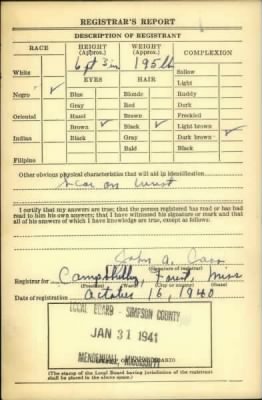 REGISTRAR'S REPORT
DESCRIPTION OF REGISTRANT
RACE HEIGHT (Approx.) WEIGHT (Approx.) COMPLEXION
6 ft 3 in 195 lb
White Sallow
EYES HAIR Light
Negro ✓ Blue Blonde Ruddy
Gray Red Dark
Oriental Hazel Brown Freckled
Brown ✓ Black ✓ Light brown
Indian Black Gray Dark brown ✓
Bald Black
Filipino
Other obvious physical characteristics that will aid in identification
Scar on wrist
I certify that my answers are true; that the person registered has read or has had
read to him his own answers; that I have witnessed his signature or mark and that
all of his answers of which I have knowledge are true, except as follows:
John A.
(Signature of registrar)
Registrar for Forest, Miss
(City or County)
Date of registration October 16, 1940
LOCAL BOARD - SIMPSON COUNTY
JAN 31 1941
MENDENHALL, MISSISSIPPI
(The stamp of the Local Board having jurisdiction of the registrant
shall be placed in the above space.)